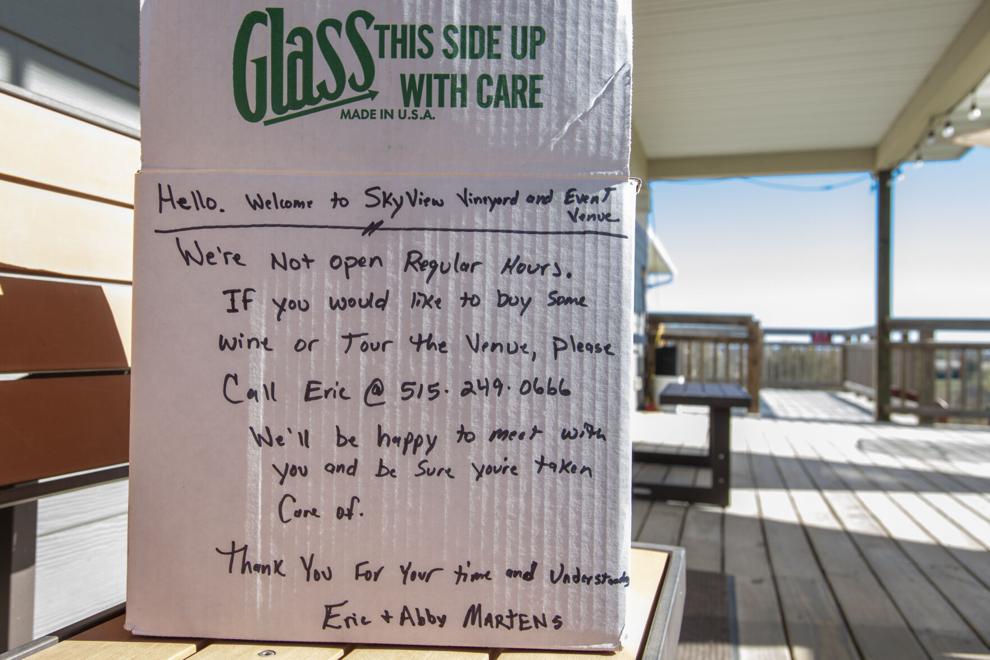 Glass THIS SIDE UP
WITH CARE
MADE IN U.S.A.
Hello. Welcome to SkyView Vineyard and Event
Venue
We're Not open Regular Hours.
If you would like to buy some
wine or Tour the Venue, please
Call Eric @ 515-249-0666
We'll be happy to meet with
you and be sure you're taken
Care of.
Thank You For Your time and Understanding
Eric + Abby MARTENS